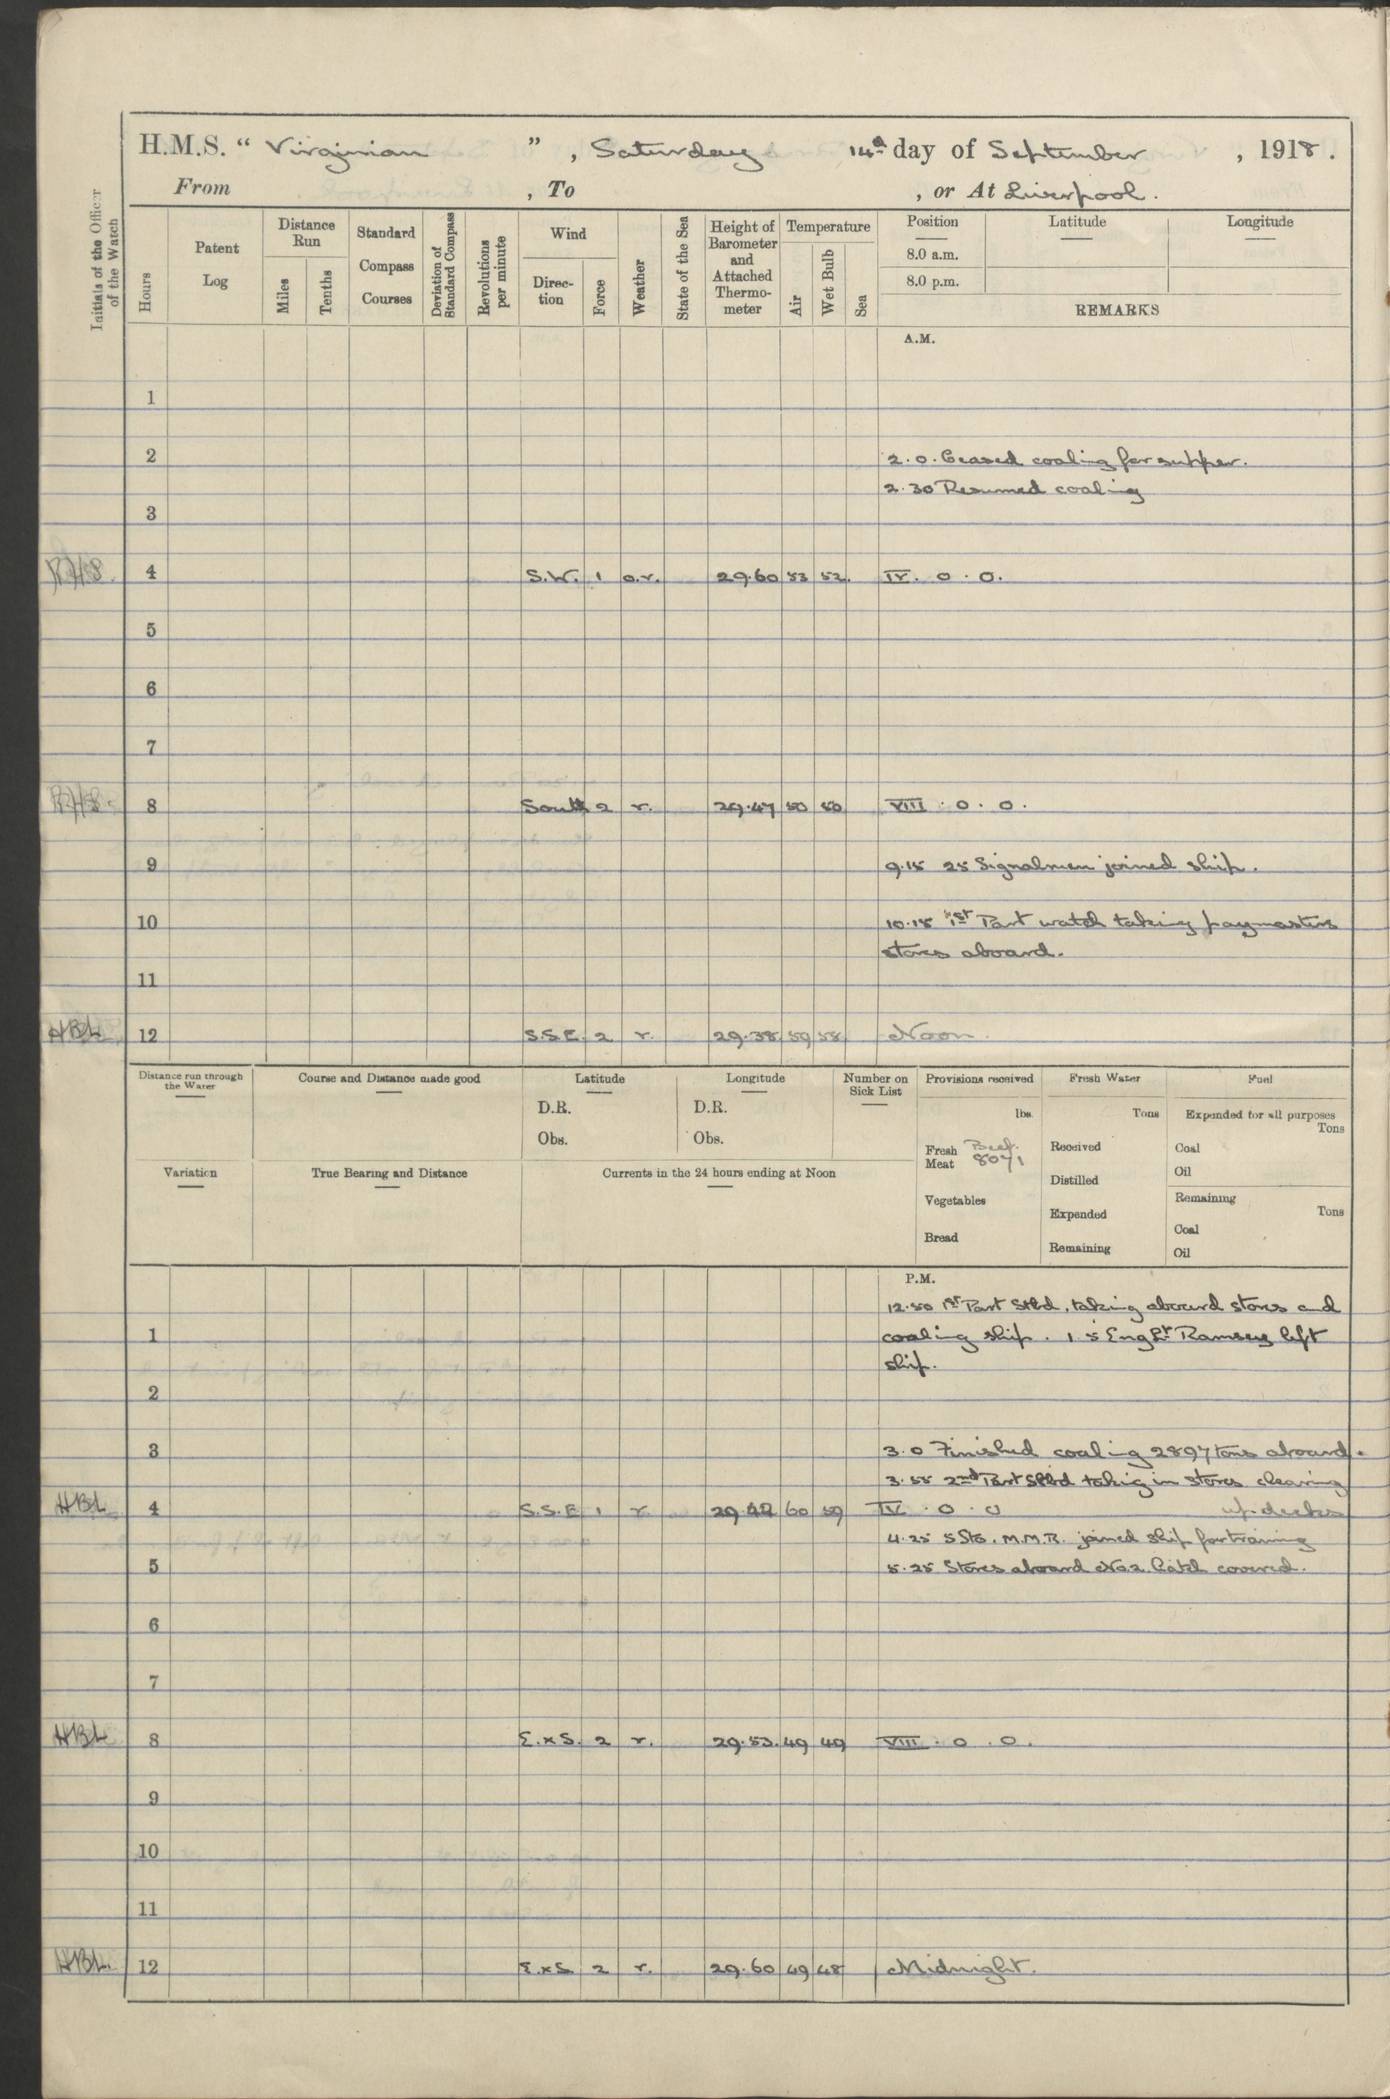 H.M.S. “ Virginian ” , Saturday 14th day of September , 1918 .
From , To , or At Liverpool .
Initials of the Officer of the Watch
Hours
Patent Log
Distance Run
Miles
Tenths
Standard Compass Courses
Deviation of Standard Compass
Revolutions per minute
Wind
Direction
Force
Weather
State of the Sea
Height of Barometer and Attached Thermometer
Temperature
Air
Wet Bulb
Sea
Position Latitude Longitude
8.0 a.m.
8.0 p.m.
REMARKS
A.M.
1
2 2.0. Ceased coaling for supper.
2.30 Resumed coaling
3
4 S.W. 1 o.r. 29.60 53 52. IV. 0 . 0.
5
6
7
8 South 2 r. 29.47 50 50 VIII . 0 . 0 .
9 9.15 25 Signalmen joined ship.
10 10.15 1st Part watch taking paymasters
stores aboard.
11
HBL 12 S.S.E. 2 r. 29.38 59 58 Noon.
Distance run through the Water
Course and Distance made good
Latitude
D.R.
Obs.
Longitude
D.R.
Obs.
Number on Sick List
Provisions received
lbs.
Fresh Meat Beef. 8071
Vegetables
Bread
Fresh Water
Tons
Received
Distilled
Expended
Remaining
Fuel
Expended for all purposes
Tons
Coal
Oil
Remaining
Tons
Coal
Oil
Variation
True Bearing and Distance
Currents in the 24 hours ending at Noon
P.M.
12.50 1st Part Stbd. taking aboard stores and
1 coaling ship . 1.5 Eng Lt Ramsey left
ship.
2
3 3.0 Finished coaling 2897 tons aboard.
3.55 2nd Part Stbd taking in stores clearing
HBL 4 S.S.E 1 r. 29.42 60 59 IV . 0 . 0 up decks
4.25 5 Sto. M.M.R. joined ship for training
5 5.25 Stores aboard No.2. hatch covered.
6
7
HBL 8 E.xS. 2 r. 29.53 49 49 VIII . 0 . 0.
9
10
11
HBL 12 E.xS. 2 r. 29.60 49 48 Midnight.